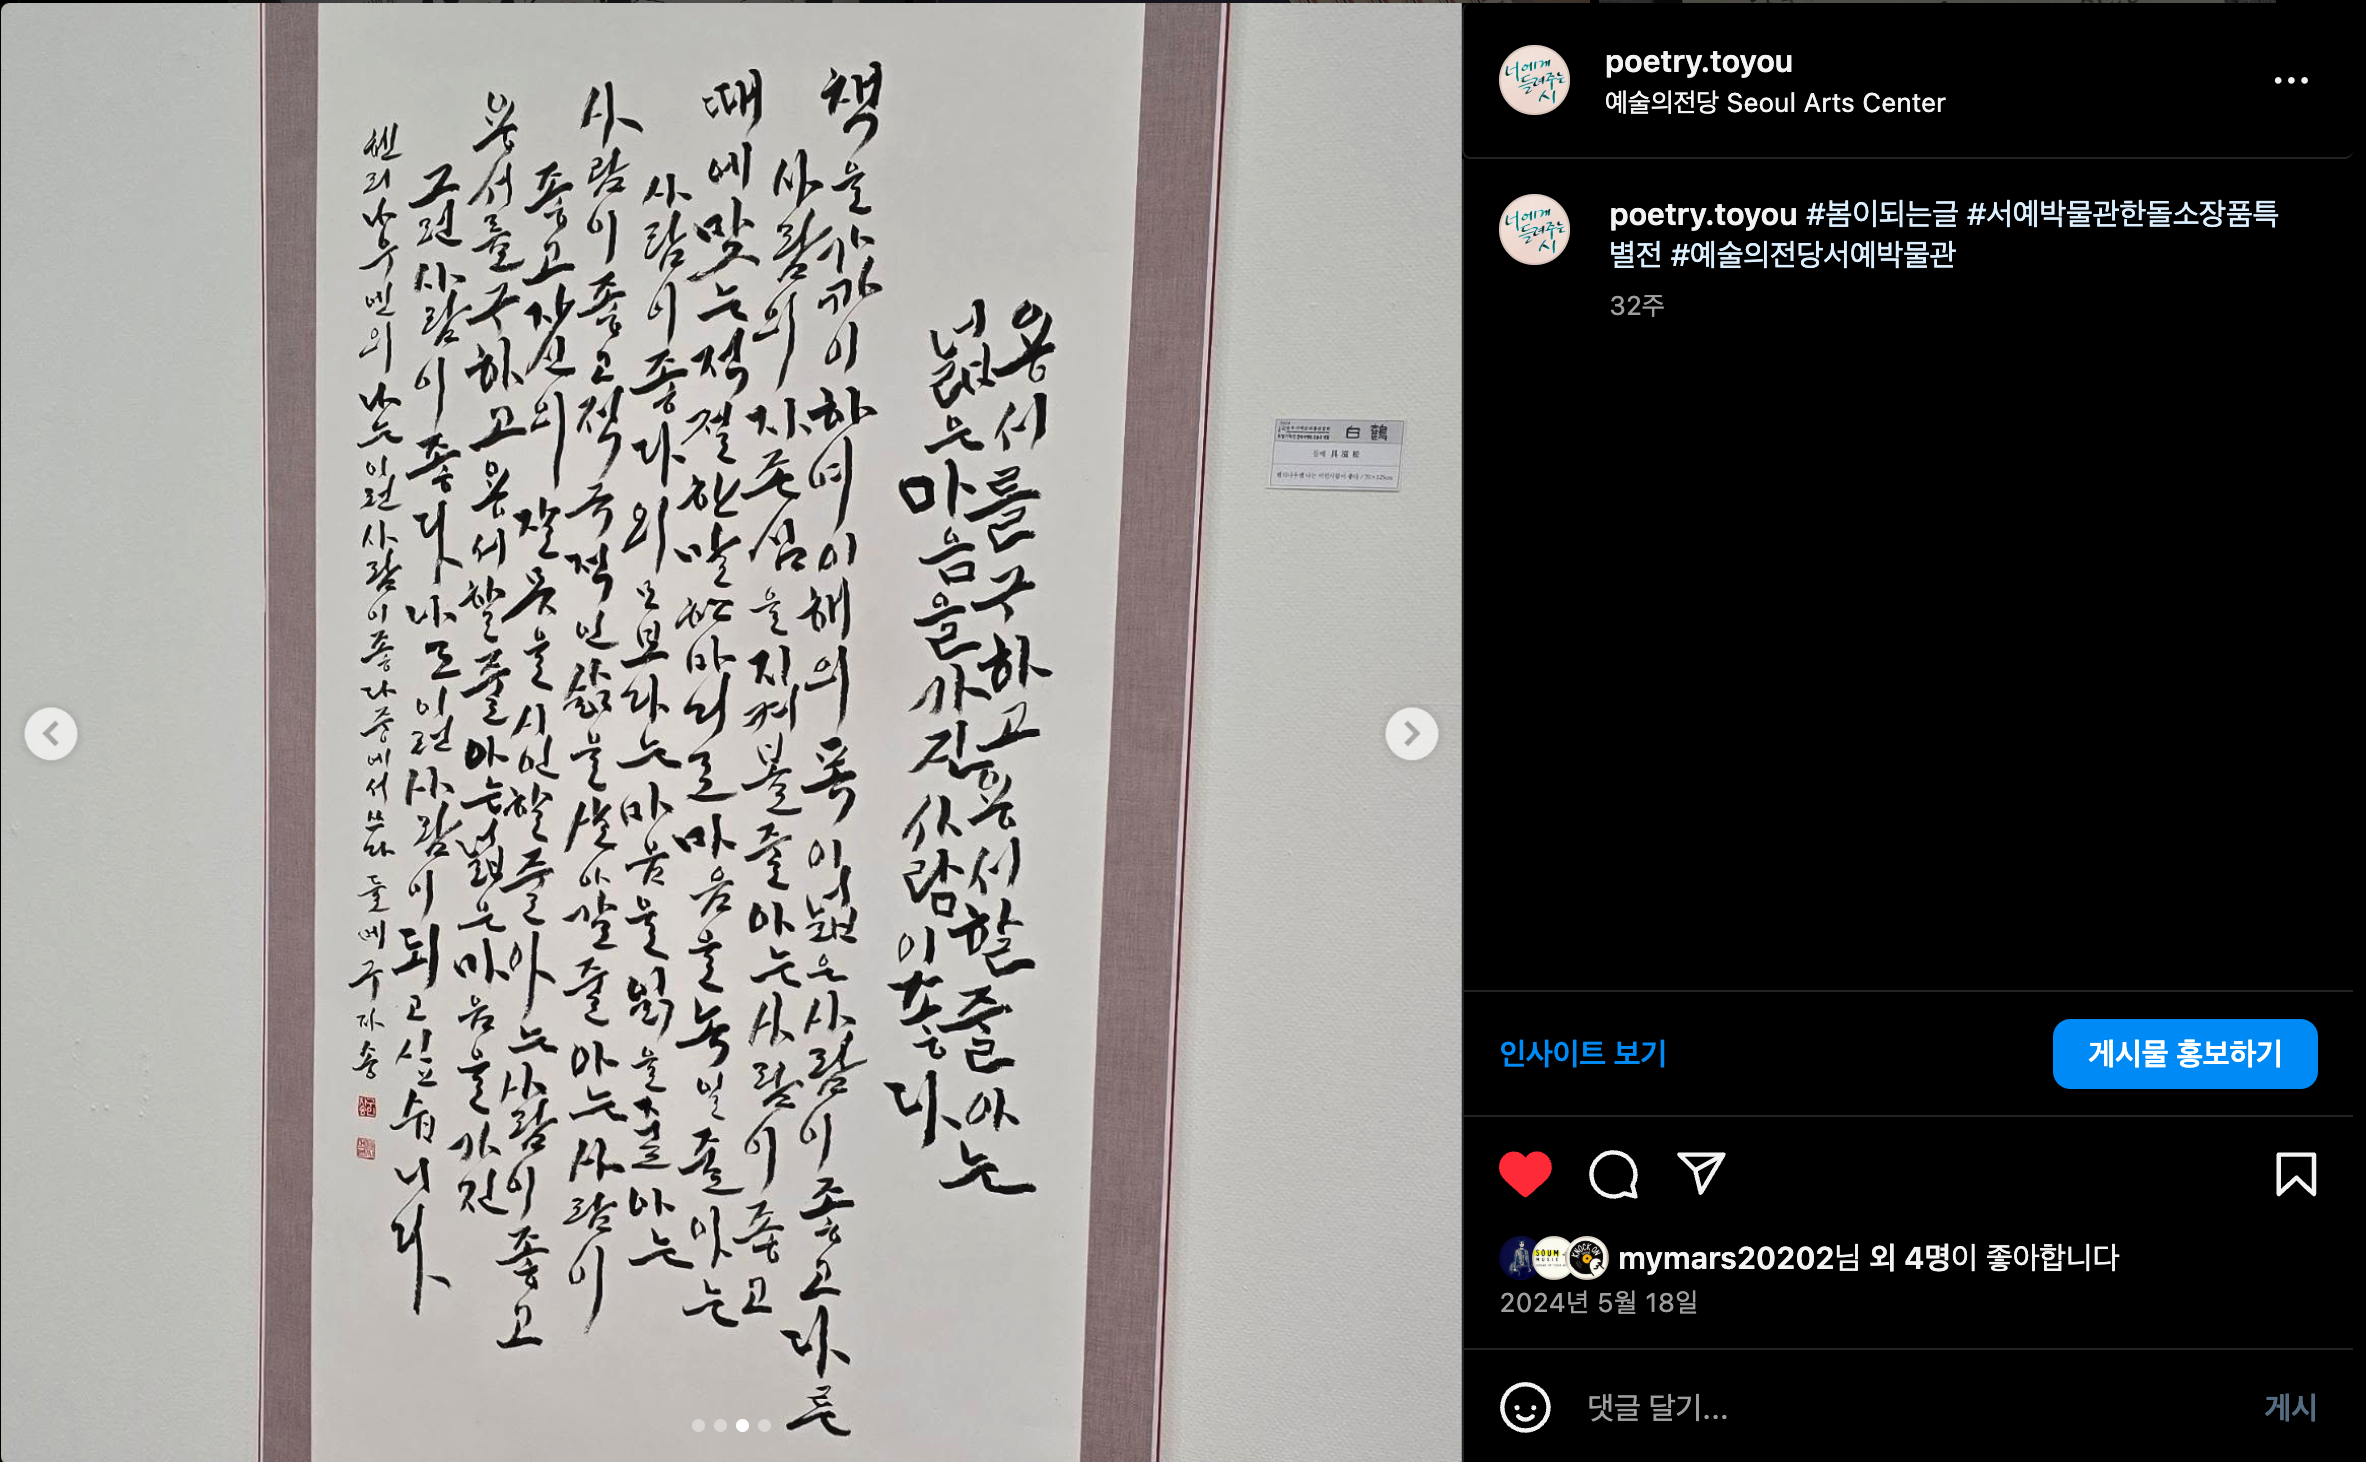 용서를구하고용서할줄아는
넓은마음을가진사람이좋다
책을가까이하여이해의폭이넓은사람이좋고다른
사람의자존심을지켜볼줄아는사람이좋고
때에맞는적절한말한마디로마음을녹일줄아는
사람이좋다외모보다는마음을읽을줄아는
사람이좋고적극적인삶을살아갈줄아는사람이
좋고자신의잘못을시인할줄아는사람이좋고
용서를구하고용서할줄아는넓은마음을가진
그런사람이좋다나도이런사람이되고싶습니다
헨리나우벤의나는이런사람이좋다중에서쓰다 들메구자송
白鶴
너에게
들려주는
시
poetry.toyou
예술의전당 Seoul Arts Center
너에게
들려주는
시
poetry.toyou #봄이되는글 #서예박물관한돌소장품특
별전 #예술의전당서예박물관
32주
인사이트 보기
게시물 홍보하기
SOUM
MUSIC
KNOCK ON
mymars20202님 외 4명이 좋아합니다
2024년 5월 18일
댓글 달기...
게시